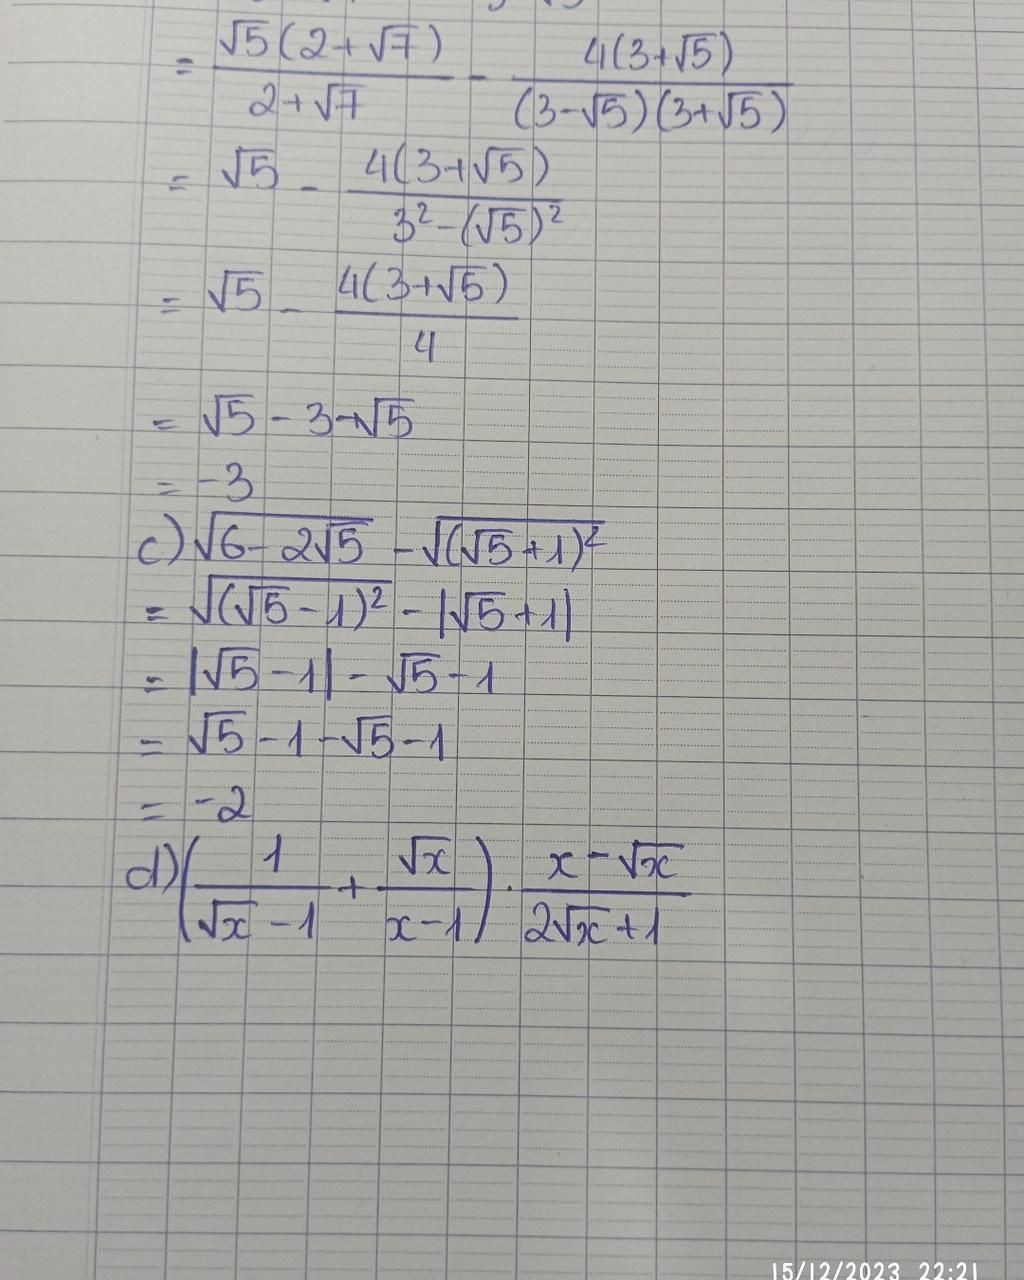 = √5(2+√7)/(2+√7) - 4(3+√5)/((3-√5)(3+√5))
= √5 - 4(3+√5)/(3²-(√5)²)
= √5 - 4(3+√5)/4
= √5 - 3 - √5
= -3
c) √(6-2√5) - √((√5+1)²)
= √((√5-1)²) - |√5+1|
= |√5-1| - √5-1
= √5-1-√5-1
= -2
d) (1/(√x-1) + √x/(x-1)) . (x-√x)/(2√x+1)
15/12/2023 22:21